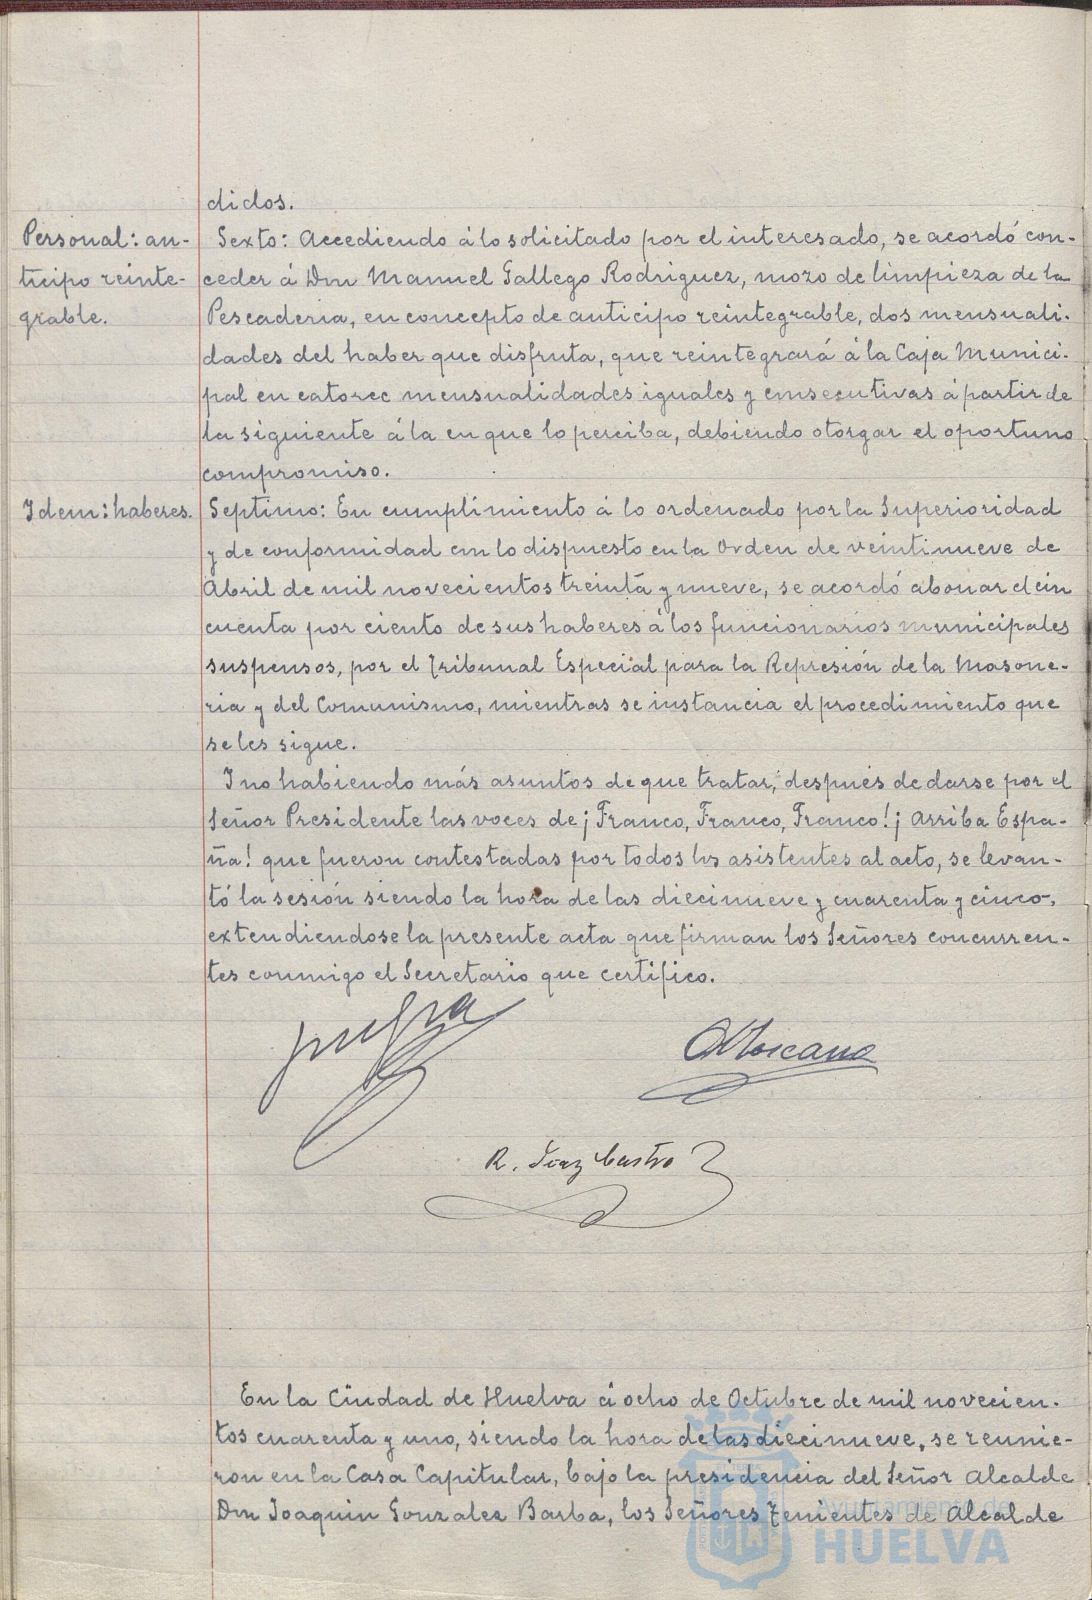 didos.
Personal: an-
ticipo reinte-
grable.
Sexto: Accediendo á lo solicitado por el interesado, se acordó con-
ceder á Don Manuel Gallego Rodriguez, mozo de limpieza de la
Pescaderia, en concepto de anticipo reintegrable, dos mensuali-
dades del haber que disfruta, que reintegrará á la Caja Munici-
pal en catorce mensualidades iguales y consecutivas á partir de
la siguiente á la en que lo perciba, debiendo otorgar el oportuno
compromiso.
Idem: haberes.
Septimo: En cumplimiento á lo ordenado por la Superioridad
y de conformidad con lo dispuesto en la Orden de veintinueve de
Abril de mil novecientos treinta y nueve, se acordó abonar el cin
cuenta por ciento de sus haberes á los funcionarios municipales
suspensos, por el Tribunal Especial para la Represión de la Masone-
ria y del Comunismo, mientras se instancia el procedimiento que
se les sigue.
I no habiendo más asuntos de que tratar, después de darse por el
Señor Presidente las voces de ¡Franco, Franco, Franco! ¡Arriba Espa-
ña! que fueron contestadas por todos los asistentes al acto, se levan-
tó la sesión siendo la hora de las diecinueve y cuarenta y cinco,
extendiendose la presente acta que firman los Señores concurren-
tes conmigo el Secretario que certifico.
Toscano
R. Diaz Castro
En la Ciudad de Huelva á ocho de Octubre de mil novecien-
tos cuarenta y uno, siendo la hora de las diecinueve, se reunie-
ron en la Casa Capitular, bajo la presidencia del Señor Alcalde
Don Joaquin Gonzalez Barba, los Señores Tenientes de Alcalde
Ayuntamiento de
HUELVA